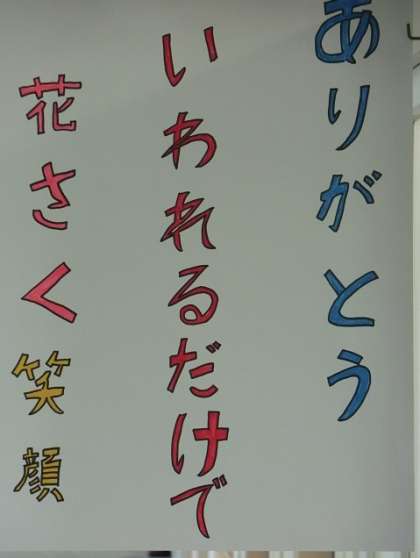 ありがとう
いわれるだけで
花さく笑顔